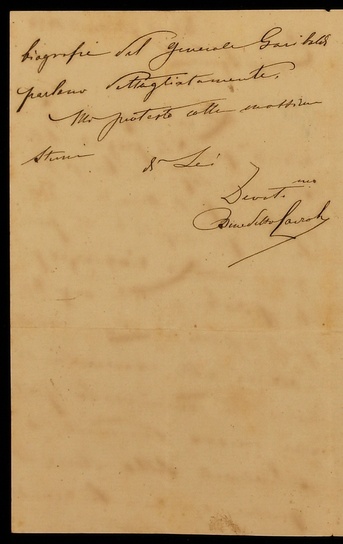 biografie del generale Garibaldi
parlano dettagliatamente.
Mi protesto colla massima
stima
di Lei
Devot.mo
Benedetto Cairoli